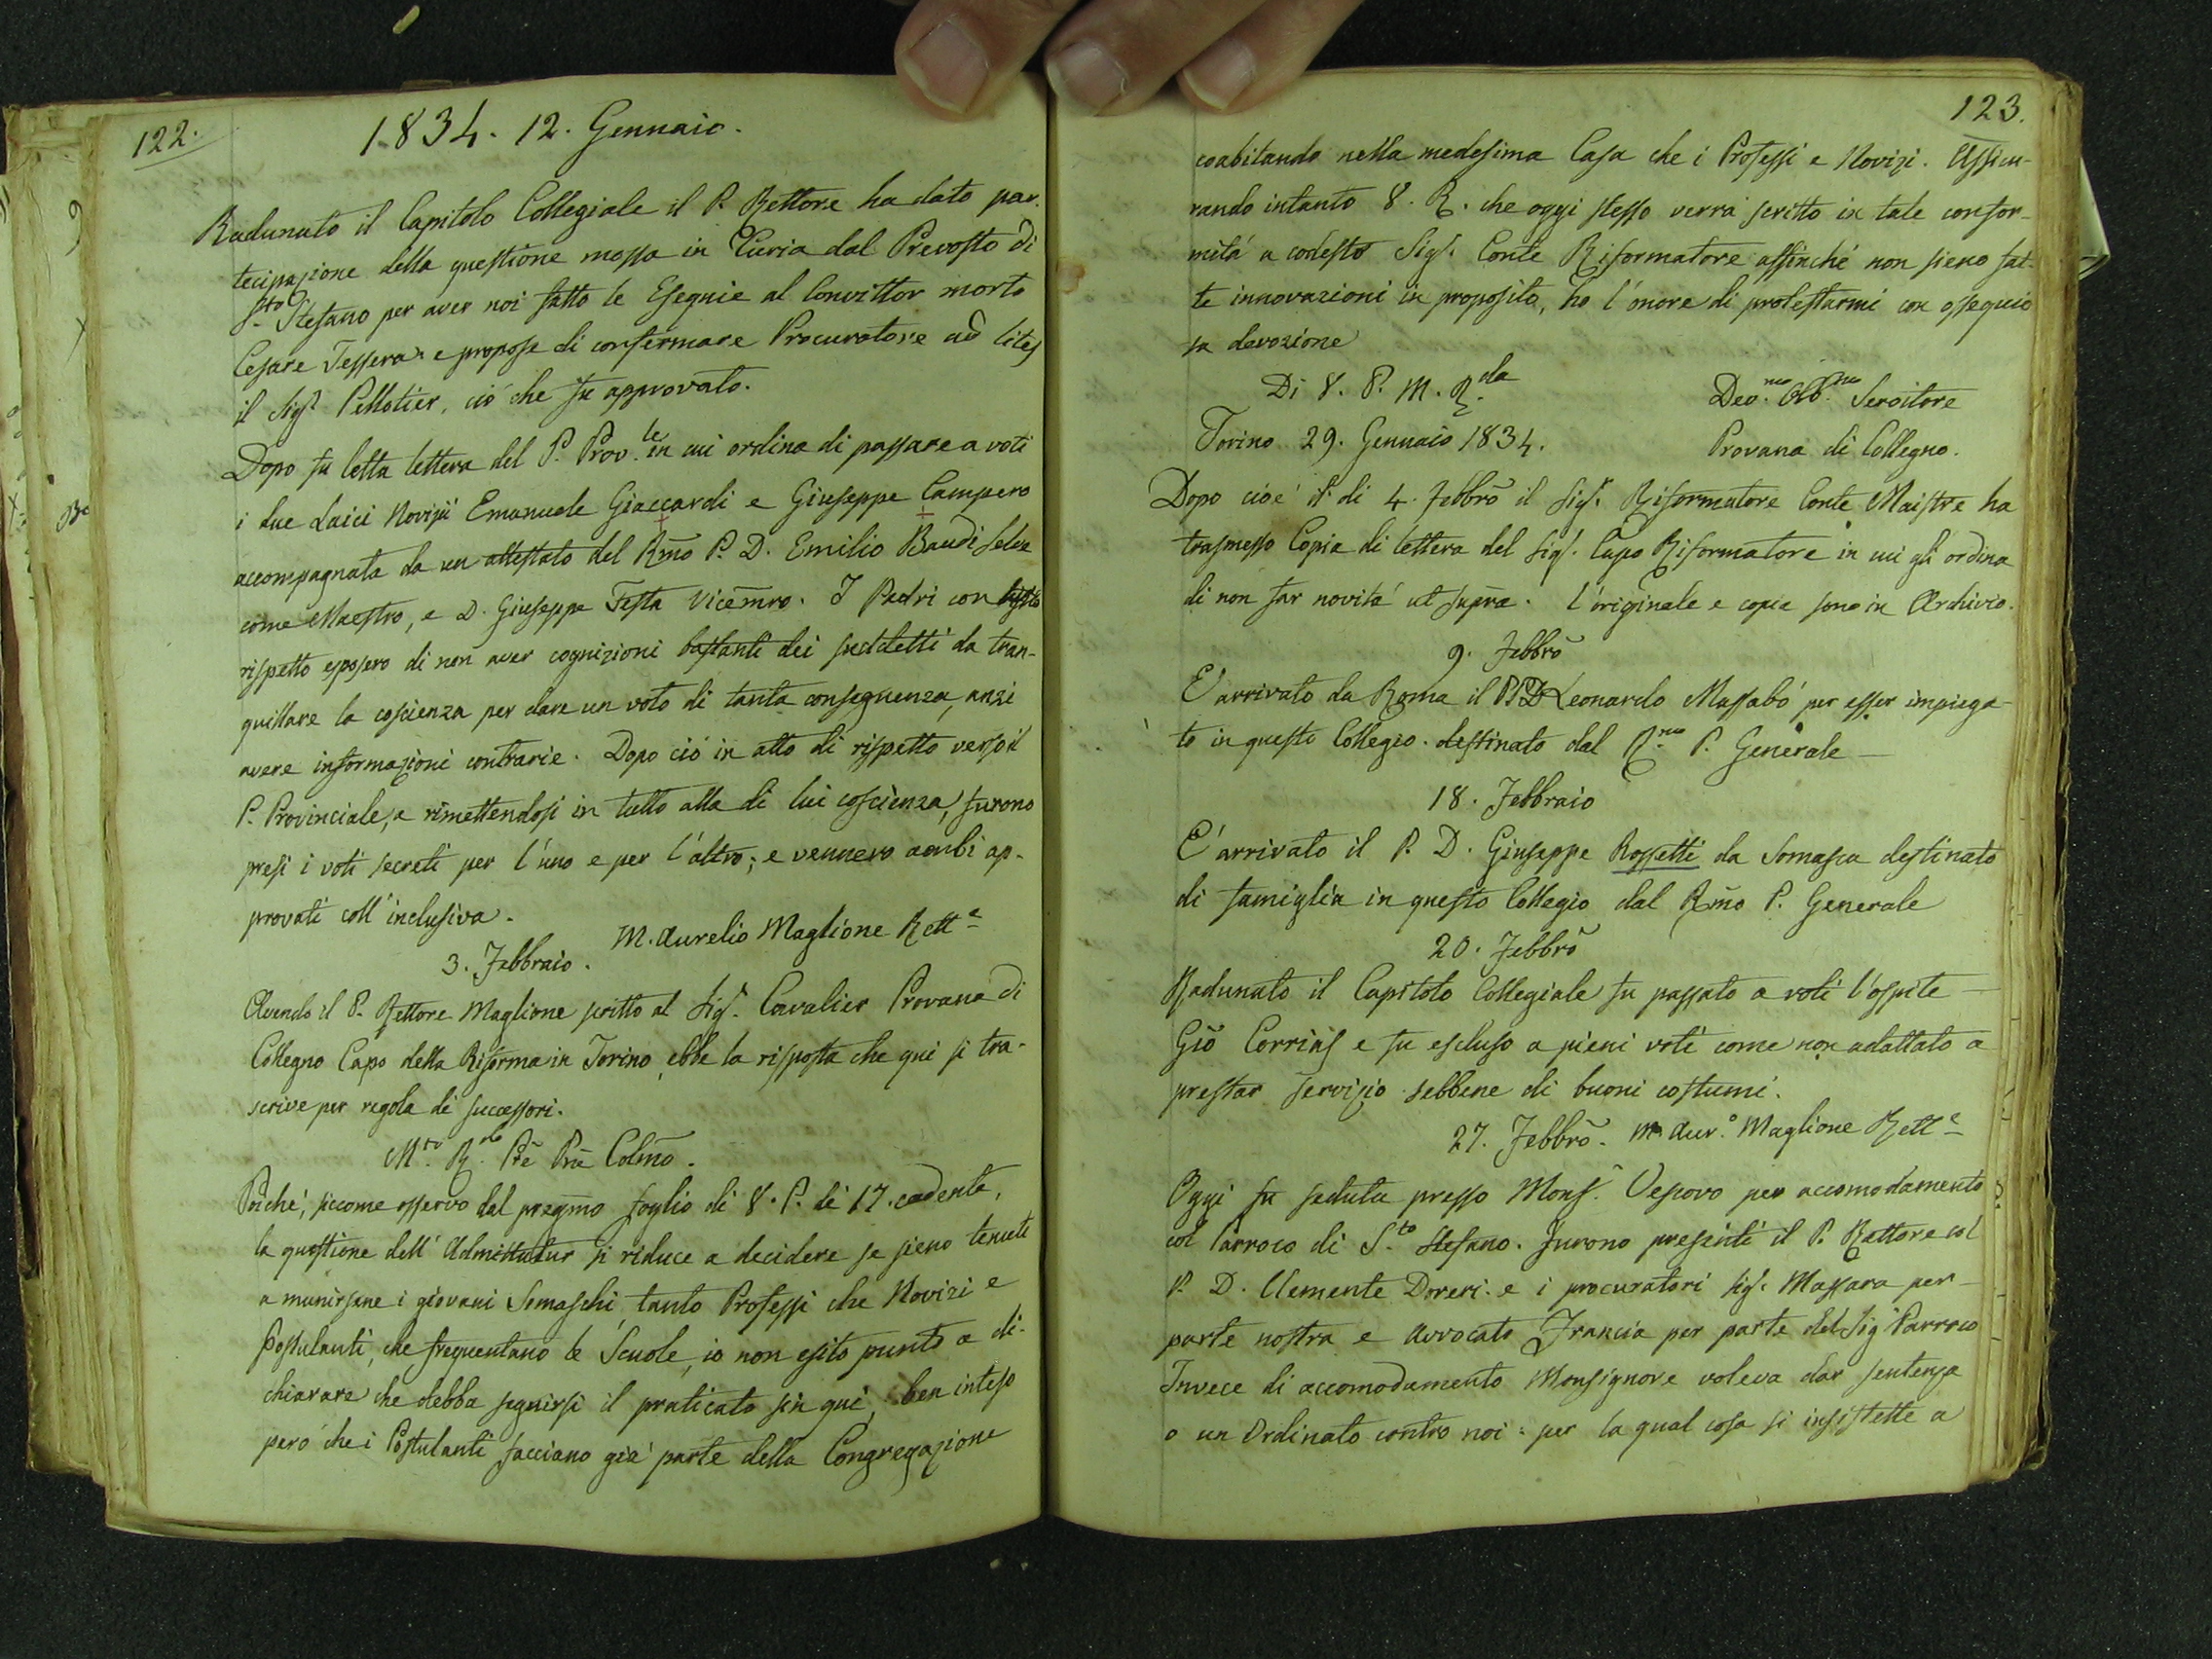 122.
1834. 12. Gennaio.
Radunato il Capitolo Collegiale il P. Rettore ha dato par-
tecipazione della questione mossa in Curia dal Prevosto di
Sto Stefano per aver noi fatto le Esequie al Convittor morto
Cesare Tessera e propose di confermare Procuratore ad lites
il Sigr Pellotier, ciò che fu approvato.
Dopo fu letta lettera del P. Prov.le in cui ordina di passare a voti
i due Laici Novizii Emanuele Giaccardi e Giuseppe Campero
accompagnata da un attestato del Rmo P. D. Emilio Baudi Selve
come Maestro, e D. Giuseppe Festa Vicemro. I Padri con
rispetto esposero di non aver cognizioni bastanti dei suddetti da tran-
quillare la coscienza per dare un voto di tanta conseguenza, anzi
avere informazioni contrarie. Dopo ciò in atto di rispetto verso il
P. Provinciale, e rimettendosi in tutto alla di lui coscienza, furono
presi i voti secreti per l'uno e per l'altro; e vennero ambi ap-
provati coll'inclusiva.
M. Aurelio Maglione Rett.e
3. Febbraio.
Avendo il P. Rettore Maglione scritto al Sigr. Cavalier Provana di
Collegno Capo della Riforma in Torino, ebbe la risposta che qui si tra-
scrive per regola dei successori.
M.to R.do Pre Prne Colmo.
Poiché, siccome osservo dal pregmo foglio di V. P. di 17. cadente,
la questione dell'Admittatur si riduce a decidere se sieno tenuti
a munirsene i giovani Somaschi, tanto Professi che Novizi e
Postulanti, che frequentano le Scuole, io non esito punto a di-
chiarare che debba seguirsi il praticato sin qui, ben inteso
però che i Postulanti facciano già parte della Congregazione
123.
coabitando nella medesima Casa che i Professi e Novizi. Assicu-
rando intanto V. R. che oggi stesso verrà scritto in tale confor-
mità a codesto Sigr. Conte Riformatore affinché non sieno fat-
te innovazioni in proposito, ho l'onore di protestarmi con ossequio
sa devozione
Di V. P. M. R.da
Dev.mo Obb.mo Servitore
Torino 29. Gennaio 1834.
Provana di Collegno.
Dopo cioè il dì 4. Febbro il Sigr. Riformatore Conte Maistre ha
trasmesso Copia di lettera del Sigr. Capo Riformatore in cui gli ordina
di non far novità ut supra. L'originale e copia sono in Archivio.
9. Febbro
E' arrivato da Roma il P. D. Leonardo Massabò per esser impiega-
to in questo Collegio destinato dal R.mo P. Generale
18. Febbraio
E' arrivato il P. D. Giuseppe Rossetti da Somasca destinato
di famiglia in questo Collegio dal Rmo P. Generale
20. Febbro
Radunato il Capitolo Collegiale fu passato a voti l'ospite
Gio Corrias e fu escluso a pieni voti come non adattato a
prestar servizio sebbene di buoni costumi.
27. Febbro. M. Aur.o Maglione Rett.e
Oggi fu seduta presso Monsr. Vescovo per accomodamento
col Parroco di S.to Stefano. Furono presenti il P. Rettore col
P. D. Clemente Doreri e i procuratori Sigr. Massara per
parte nostra e Avvocato Francia per parte del Sigr Parroco
Invece di accomodamento Monsignore voleva dar sentenza
o un Ordinato contro noi: per la qual cosa si insistette a